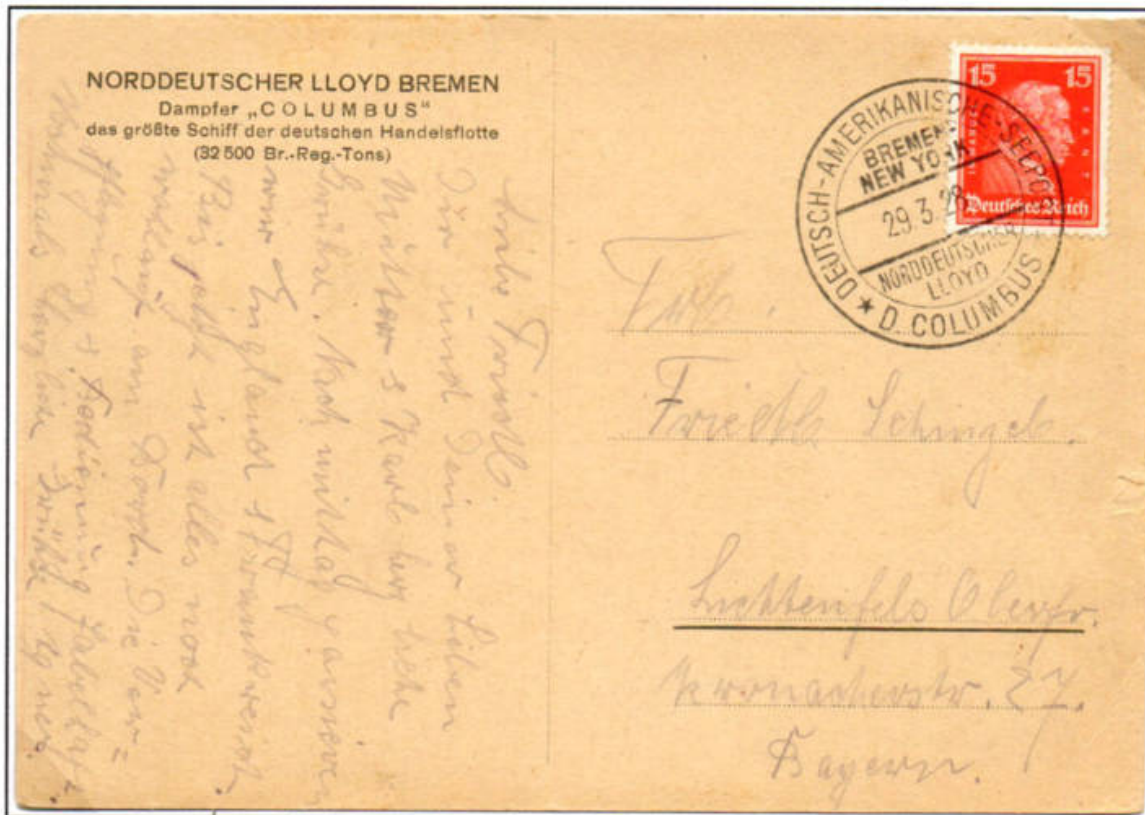 NORDDEUTSCHER LLOYD BREMEN
Dampfer „COLUMBUS“
das größte Schiff der deutschen Handelsflotte
(32 500 Br.-Reg.-Tons)
Liebe Friedl.
Dir und Deiner lieben
Mutter & Karl herzliche
Grüße. Nachmittag passieren
wir England & Frankreich.
Bis jetzt ist alles noch
wohlauf an Bord. Die Ver=
pflegung & Bedienung fabelhaft.
Nochmals herzliche Grüße
15 15
Deutsches Reich
DEUTSCH-AMERIKANISCHE-SEEPOST
BREMEN-
NEW YORK
29.3.28
NORDDEUTSCHER
LLOYD
★ D. COLUMBUS
Frl.
Friedl Schingel.
Lichtenfels Oberfr.
Kronacherstr. 27.
Bayern.